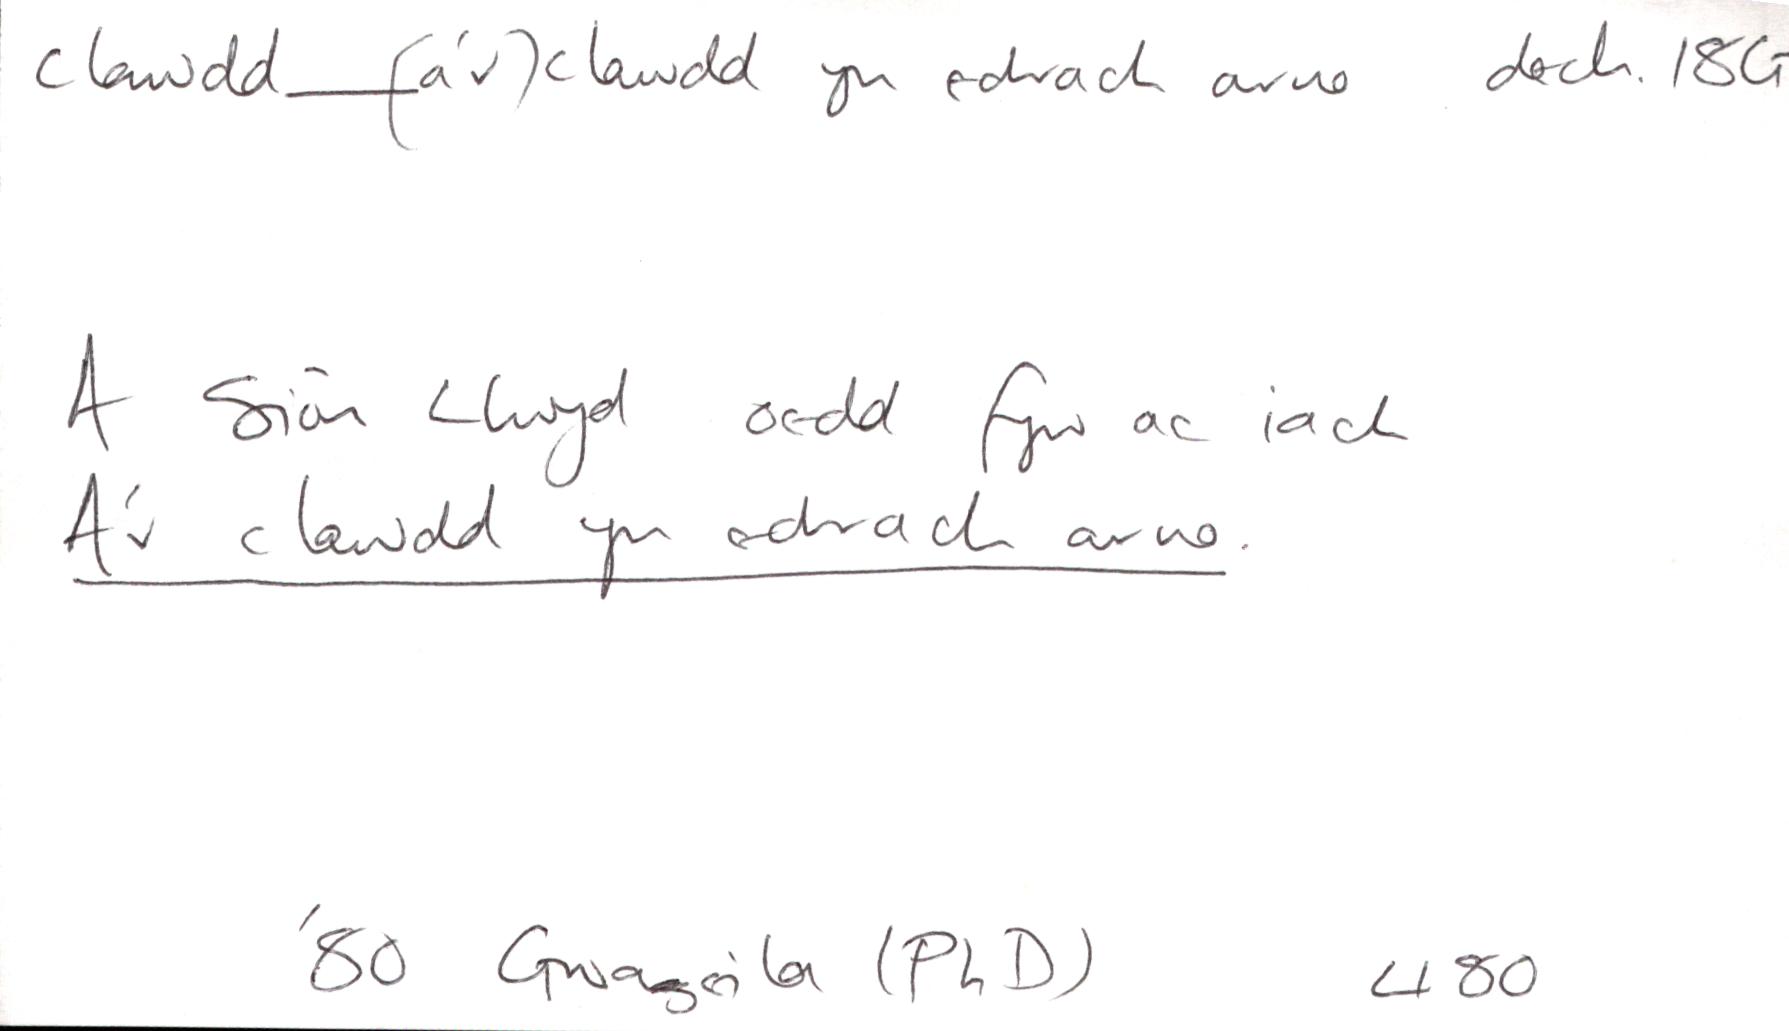 clawdd__(a'r)clawdd yn edrach arno dech. 18G
A Siôn Llwyd oedd fyw ac iach
A'r clawdd yn edrach arno.
'80 (PhD) 480